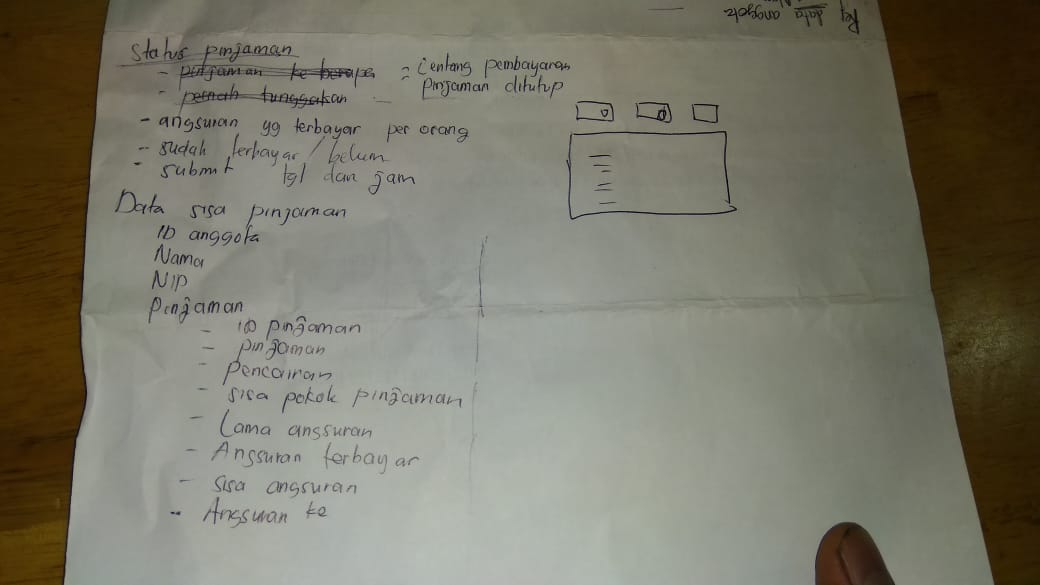 Rep data anggota
Status pinjaman
- pinjaman ke berapa = Centang pembayaran
- pernah tunggakan pinjaman ditutup
- angsuran yg terbayar per orang
- sudah terbayar / belum
- submit tgl dan jam
Data sisa pinjaman
ID anggota
Nama
NIP
Pinjaman
- ID pinjaman
- pinjaman
- Pencairan
- sisa pokok pinjaman
- Lama angsuran
- Angsuran terbayar
- sisa angsuran
- Angsuran ke